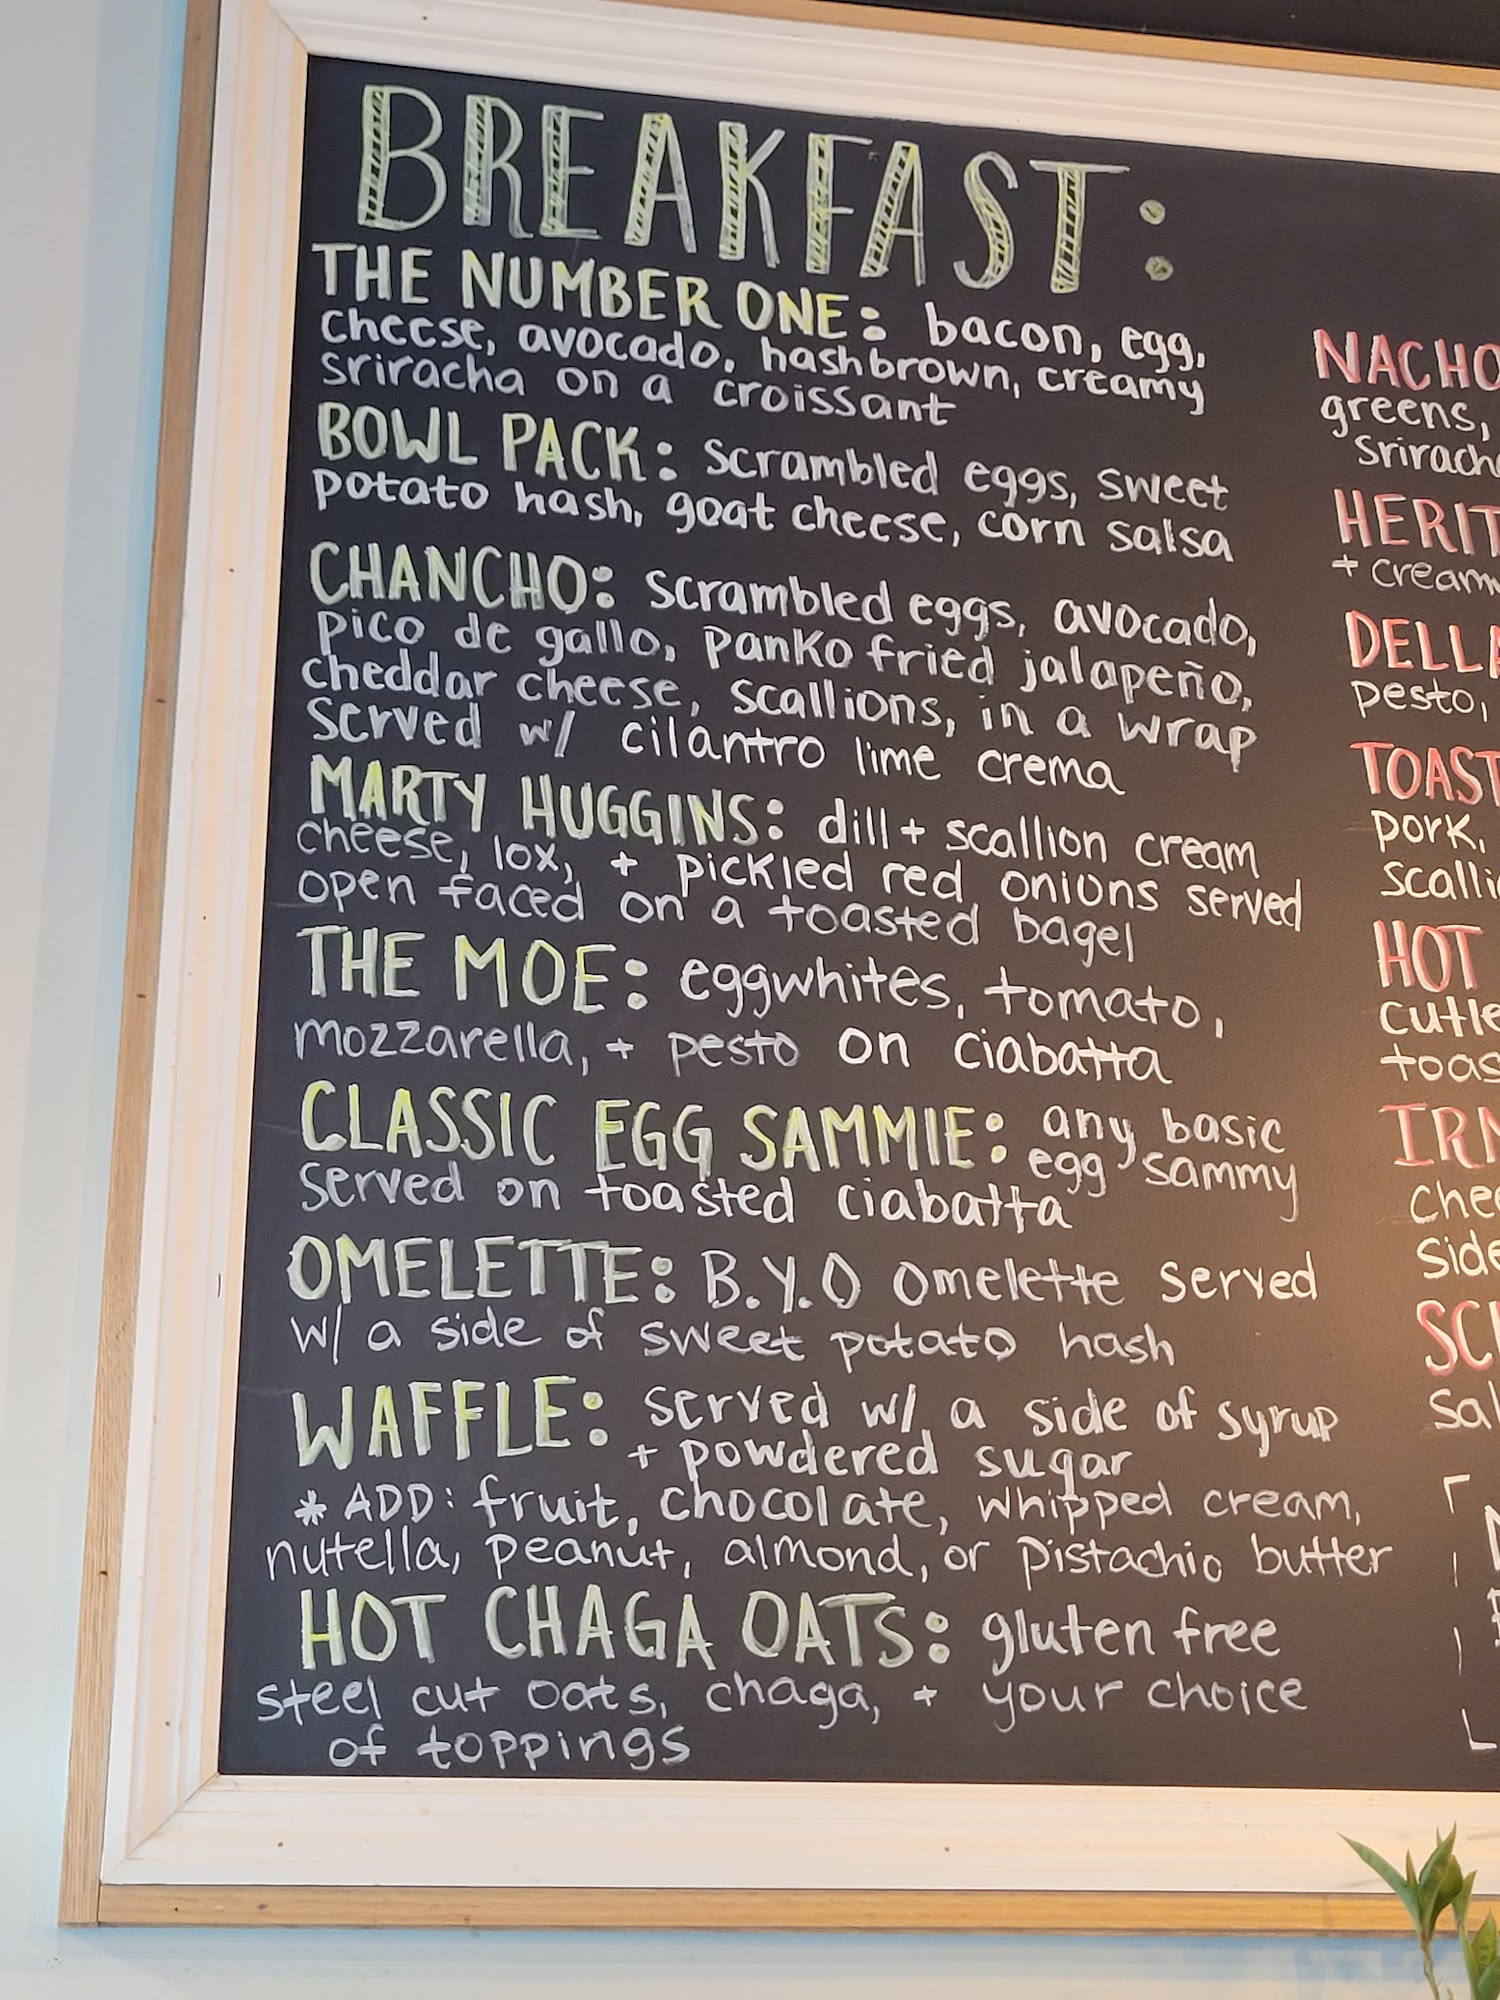 BREAKFAST:
THE NUMBER ONE: bacon, egg,
cheese, avocado, hashbrown, creamy
sriracha on a croissant
BOWL PACK: scrambled eggs, sweet
potato hash, goat cheese, corn salsa
CHANCHO: scrambled eggs, avocado,
pico de gallo, panko fried jalapeño,
cheddar cheese, scallions, in a wrap
served w/ cilantro lime crema
MARTY HUGGINS: dill + scallion cream
cheese, lox, + pickled red onions served
open faced on a toasted bagel
THE MOE: eggwhites, tomato,
mozzarella, + pesto on ciabatta
CLASSIC EGG SAMMIE: any basic
egg sammy
served on toasted ciabatta
OMELETTE: B.Y.O omelette served
w/ a side of sweet potato hash
WAFFLE: served w/ a side of syrup
+ powdered sugar
* ADD: fruit, chocolate, whipped cream,
nutella, peanut, almond, or pistachio butter
HOT CHAGA OATS: gluten free
steel cut oats, chaga, + your choice
of toppings
NACHO
greens,
srirach
HERIT
+ cream
DELLA
pesto,
TOAST
pork,
scalli
HOT
cutle
toas
IRN
chee
side
SC
sal